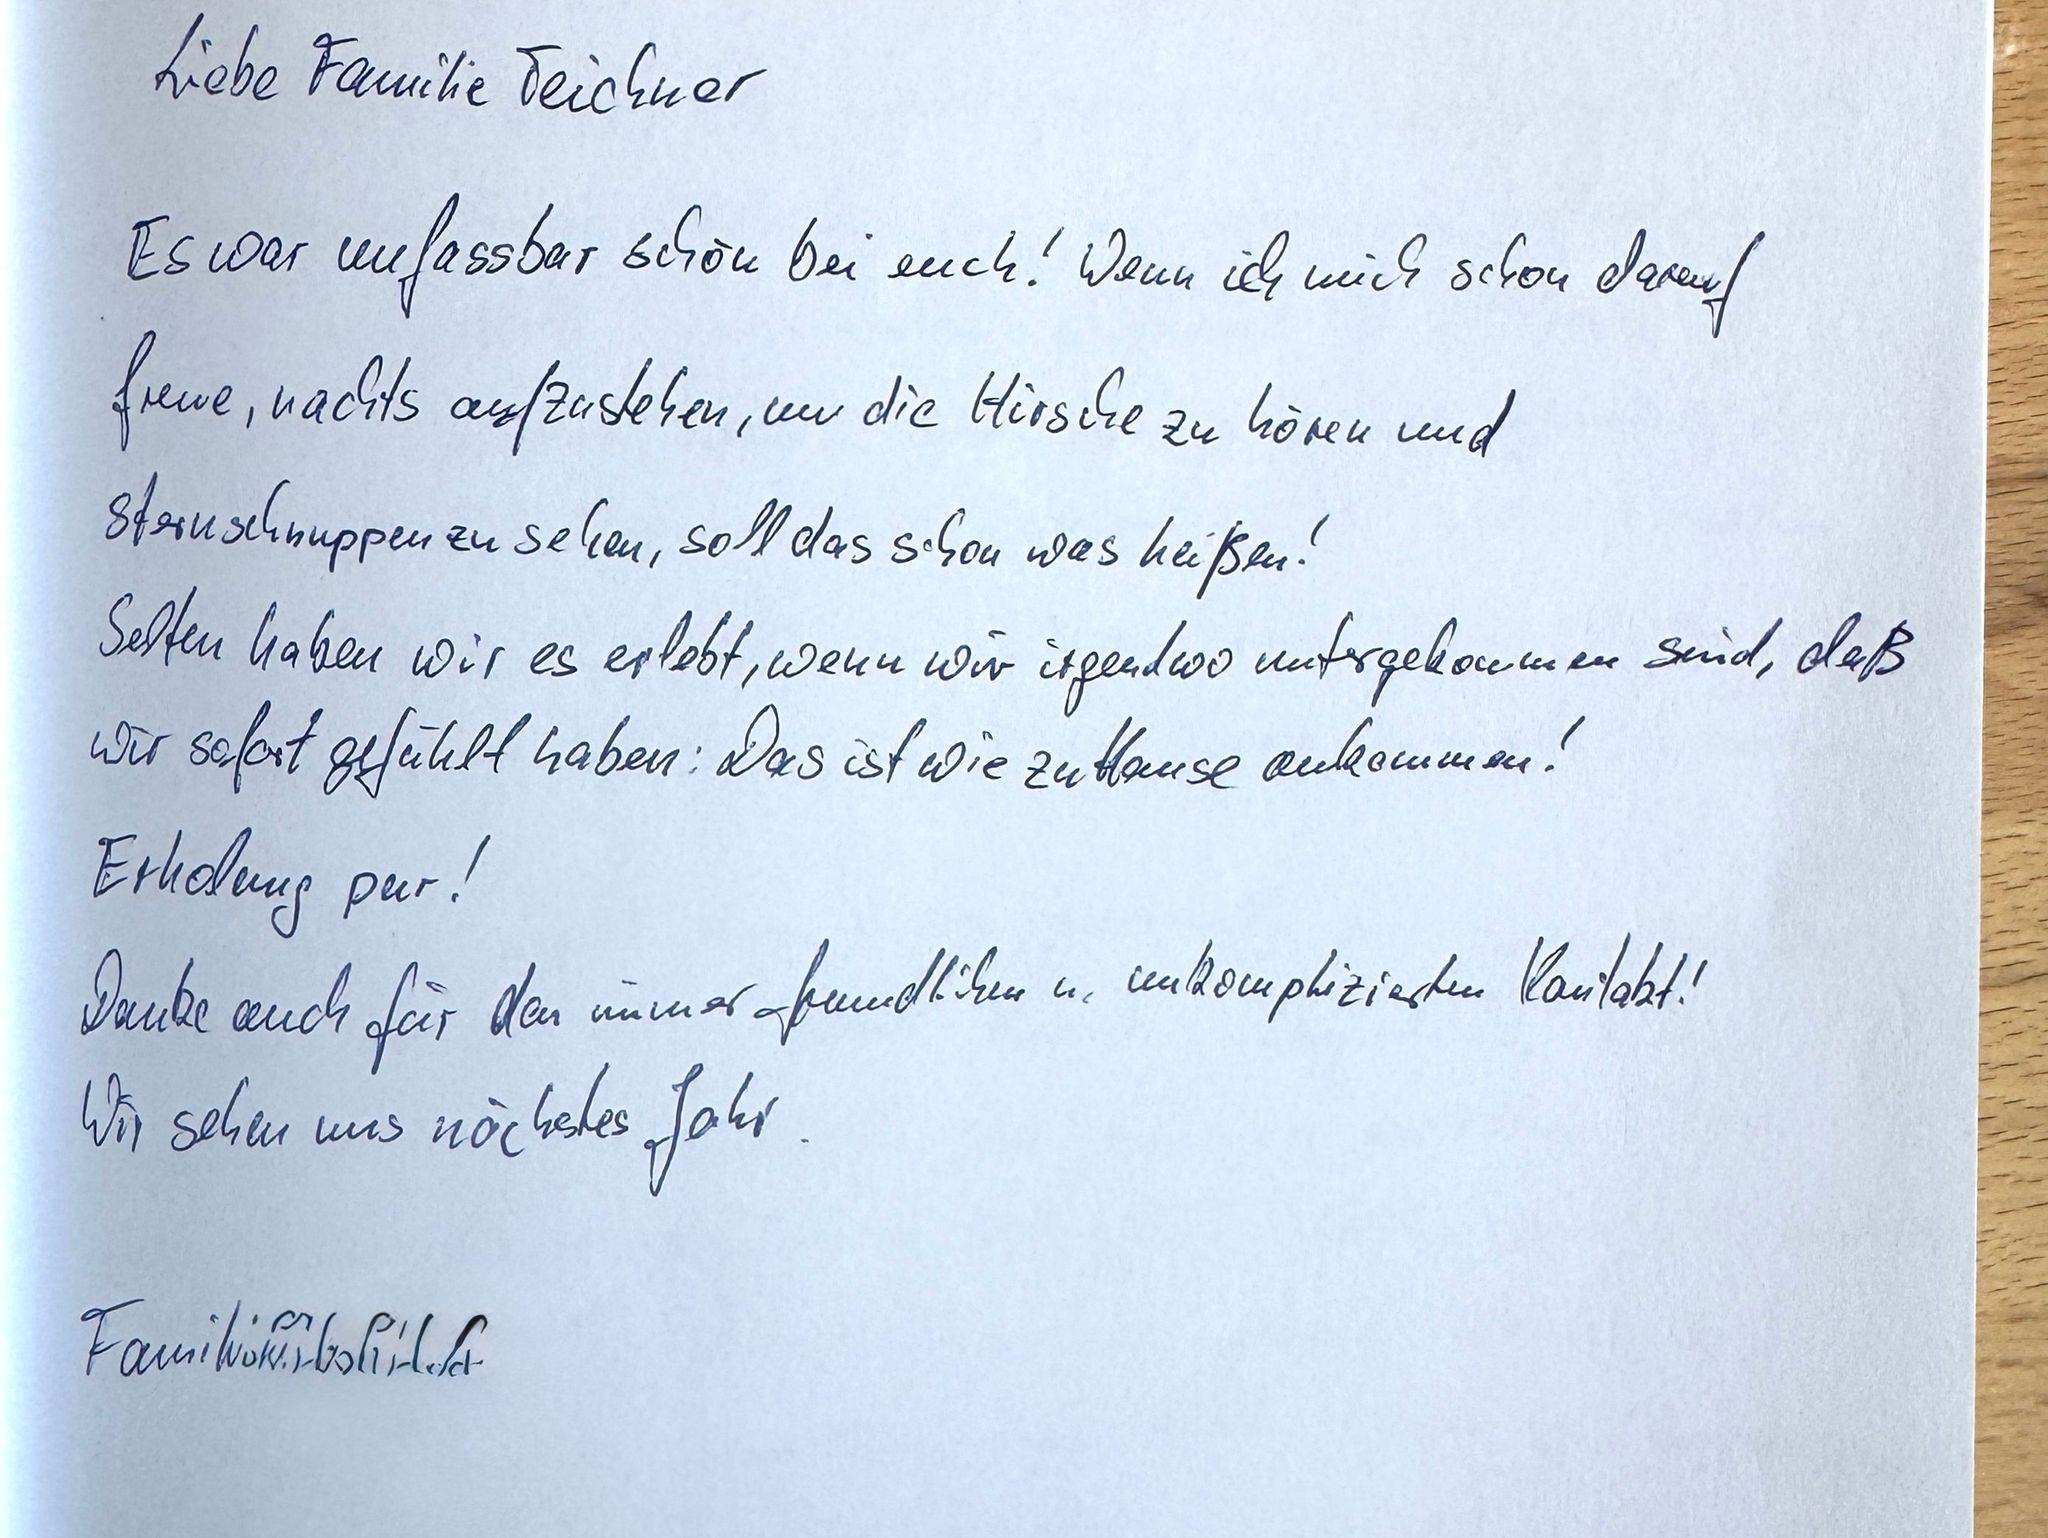 Liebe Familie Teichner
Es war unfassbar schön bei euch! Wenn ich mich schon darauf
freue, nachts aufzustehen, um die Hirsche zu hören und
Sternschnuppen zu sehen, soll das schon was heißen!
Selten haben wir es erlebt, wenn wir irgendwo untergekommen sind, daß
wir sofort gefühlt haben: Das ist wie zu Hause ankommen!
Erholung pur!
Danke auch für den immer freundlichen u. unkomplizierten Kontakt!
Wir sehen uns nächstes Jahr.